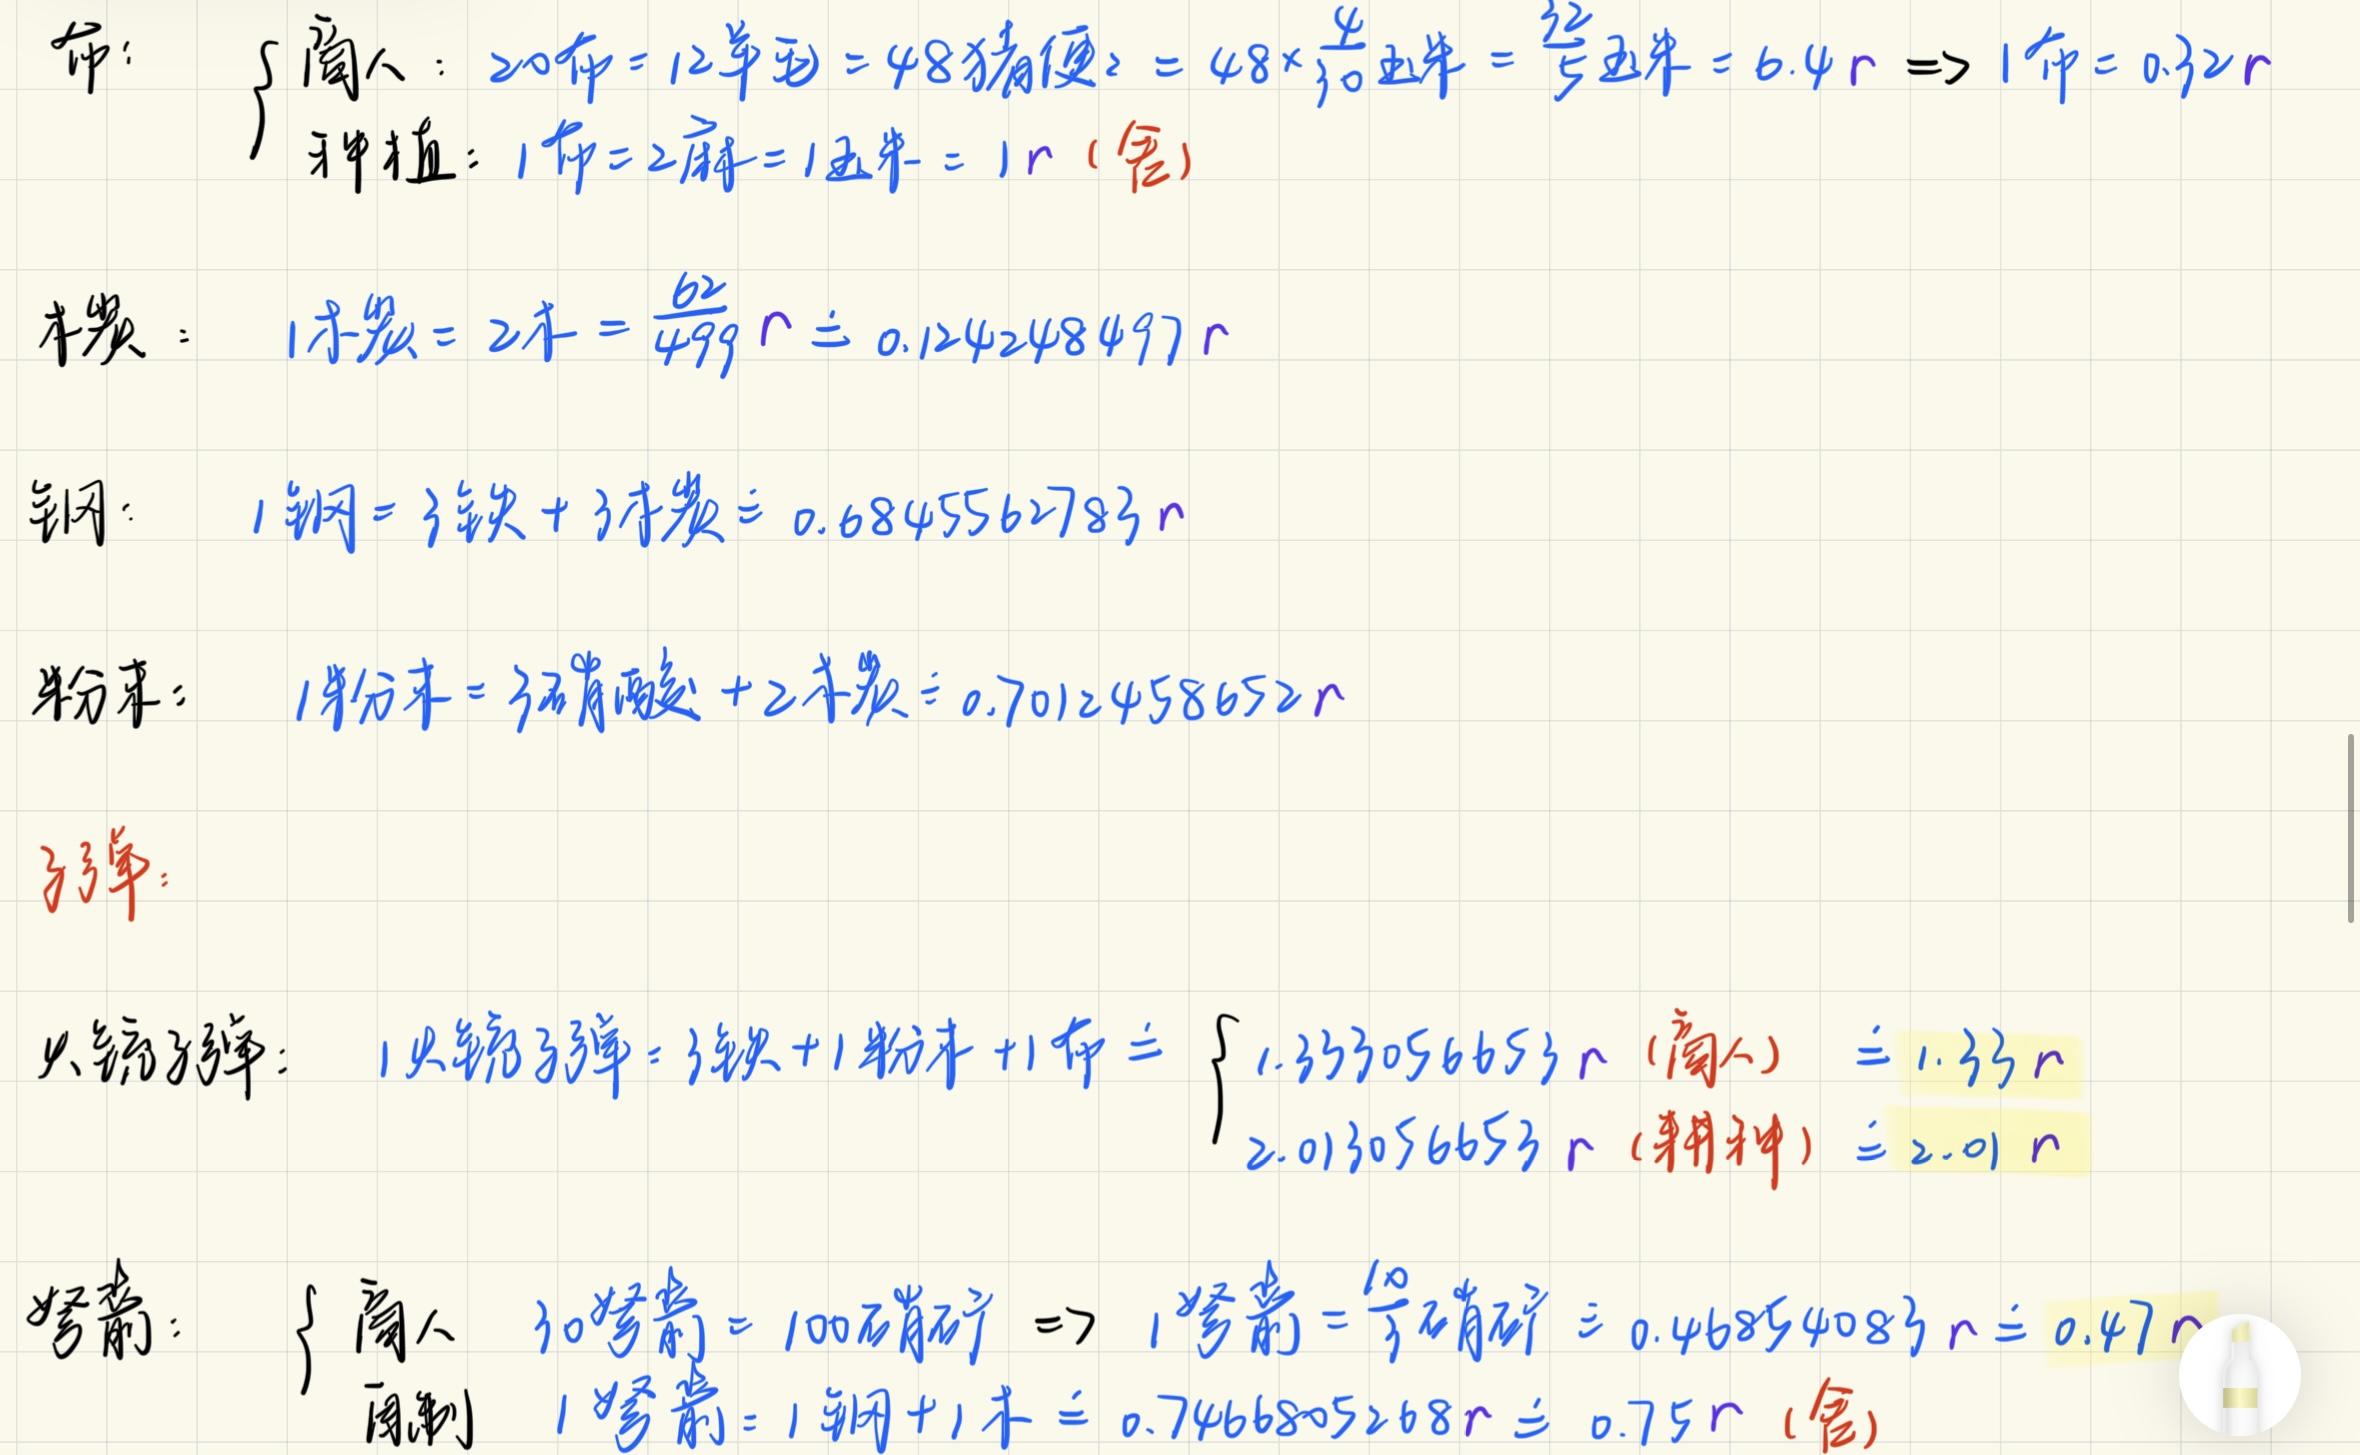 布: { 商人: 20布 = 12羊毛 = 48猪便2 = 48×4/30玉米 = 32/5玉米 = 6.4r => 1布 = 0.32r
种植: 1布 = 2麻 = 1玉米 = 1r (舍)
木炭: 1木炭 = 2木 = 62/499 r ≐ 0.124248497r
钢: 1钢 = 3铁 + 3木炭 ≐ 0.6845562783r
粉末: 1粉末 = 3硝酸 + 2木炭 ≐ 0.7012458652r
子弹:
火铳子弹: 1火铳子弹 = 3铁 + 1粉末 + 1布 ≐ { 1.333056653r (商人) ≐ 1.33r
2.013056653r (耕种) ≐ 2.01r
弩箭: { 商人 30弩箭 = 100硝矿 => 1弩箭 = 10/3硝矿 ≐ 0.46854083r ≐ 0.47r
自制 1弩箭 = 1钢 + 1木 ≐ 0.7466805268r ≐ 0.75r (舍)